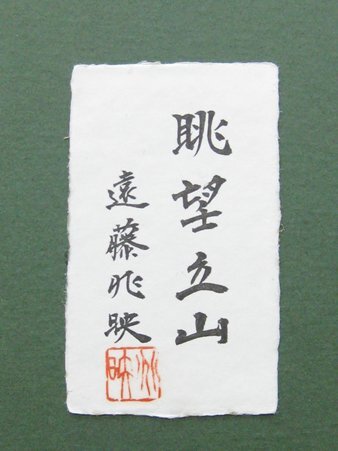 眺望立山
遠藤兆映
兆映